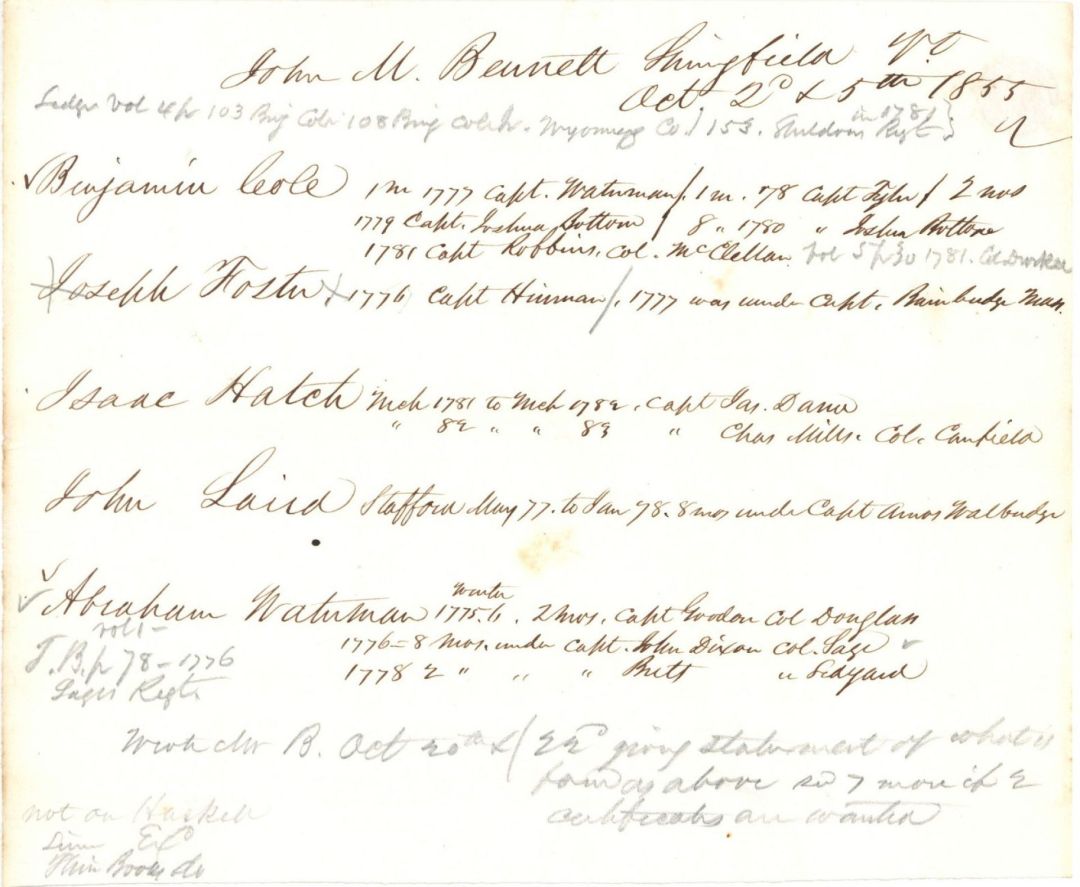 John M. Bennett Springfield Vt
Oct 2d & 5th 1855
Ledger Vol 4 p 103 Brig Cols 108 Brig Wyoming Co. / 153. Sheldons Regt in 1781
Benjamin Cole 1 m 1777 Capt. Waterman /. 1 m. '78 Capt Tyler / 2 mos
1779 Capt. Joshua Bottom / 8 " 1780 " Joshua Bottom
1781 Capt Robbins, Col. McClellan Vol 5 p 30 1781. Col Durkee
Joseph Foster 1776 Capt Hinman /. 1777 was under Capt. Bainbridge Mass.
Isaac Hatch Mch 1781 to Mch 1782. Capt Jas. Dana
" 82 " " 83 " Chas Mills. Col. Canfield
John Laird Stafford May 77. to Jan 78. 8 mos under Capt Amos Walbridge
Abraham Waterman Winter 1775.6. 2 mos. Capt Gordon Col Douglas
1776 = 8 mos. under Capt. John Dixon Col. Sage
vol 1 -
T. B. p 78 - 1776
1778 2 " " " Bett " Ledyard
Sages Regt.
Wrote Mr B. Oct 20th & 22d giving statement of what is
found as above so 7 more if 2
certificates are wanted
not on Haskell
Thin Book do